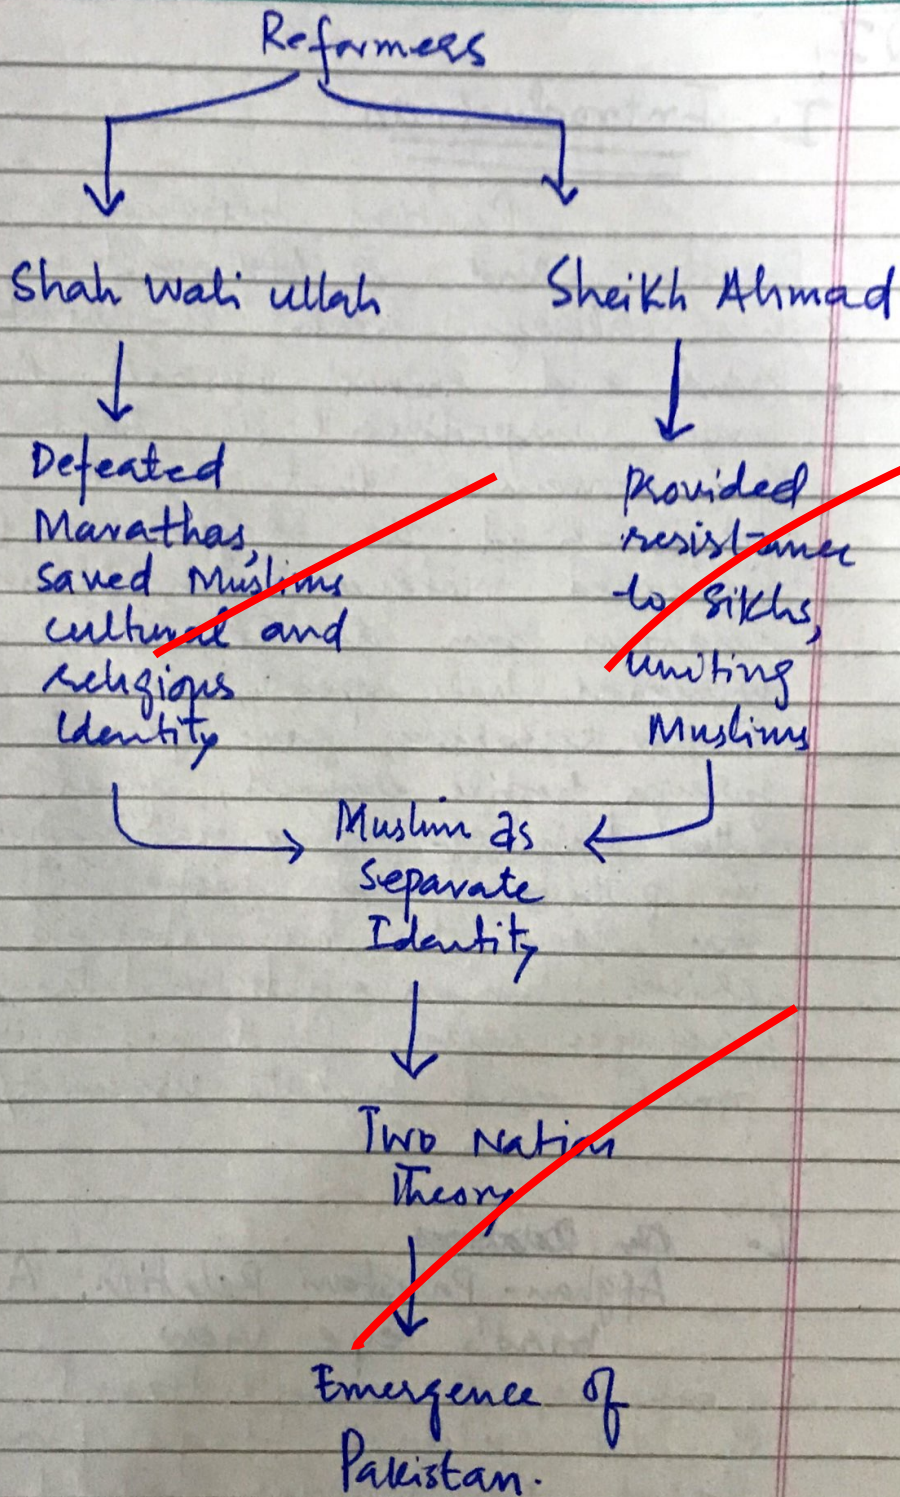 Reformers
Shah Wali ullah
Sheikh Ahmad
Defeated
Marathas,
saved Muslims
cultural and
religious
Identity
provided
resistance
to Sikhs,
uniting
Muslims
Muslim as
Separate
Identity
Two Nation
Theory
Emergence of
Pakistan.